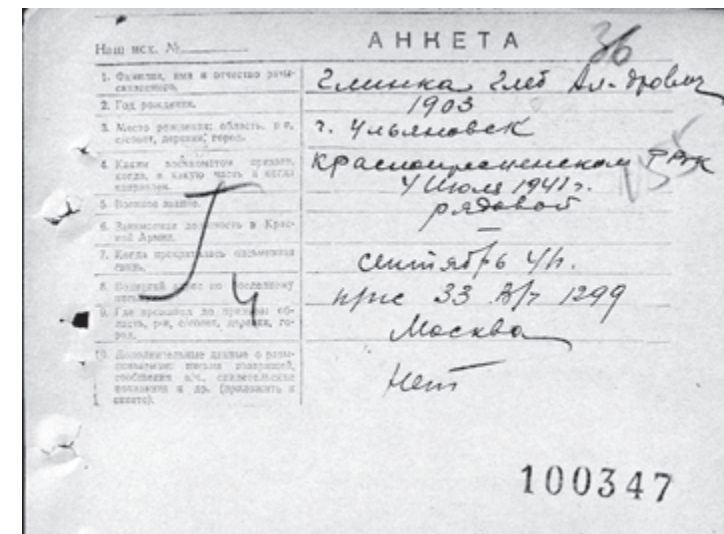 Наш исх. №
АНКЕТА
36
1. Фамилия, имя и отчество разы-
скиваемого.
Глинка Глеб Ал-дрович
2. Год рождения.
1903
3. Место рождения: область, р-н,
с/совет, деревня, город.
г. Ульяновск
4. Каким военкоматом призван,
когда, в какую часть и когда
направлен.
Краснопресненским РВК
4 Июля 1941 г.
5. Военное звание.
рядовой
6. Занимаемая должность в Крас-
ной Армии.
—
7. Когда прекратилась письменная
связь.
сентябрь 41.
8. Подробный адрес по последнему
ппс 33 п/я 1299
9. Где проживал до призыва: об-
ласть, р-н, с/совет, деревня, го-
род.
Москва
10. Дополнительные данные о разы-
скиваемом: письма товарищей,
сообщения в/ч,
и др. (приложить к
анкете).
Нет
100347